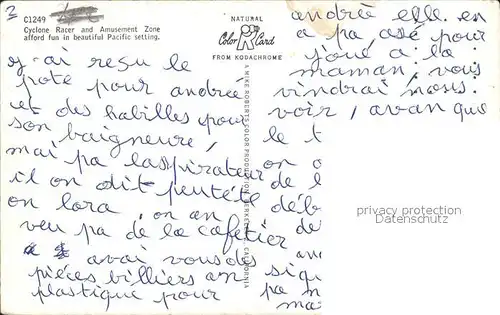 2
C1249
Cyclone Racer and Amusement Zone
afford fun in beautiful Pacific setting.
NATURAL
Color Card
FROM KODACHROME
A MIKE ROBERTS COLOR PRODUCTION, BERKELEY, CALIFORNIA
j'ai resu le
pote pour andrée
et des habilles pour
son baigneure,
mai pa laspirateur
il on dit peutétl
on lora on an
veu pa de la cafetier
avai vous des
pièces billiers an
plastique pour
andrée elle en
a pa asé pour
joué a la
maman, vous
vindrai moss.
voir, avan que
le t
on a
de l
déb
de
an
si qu
pa m
ma
privacy protection
Datenschutz